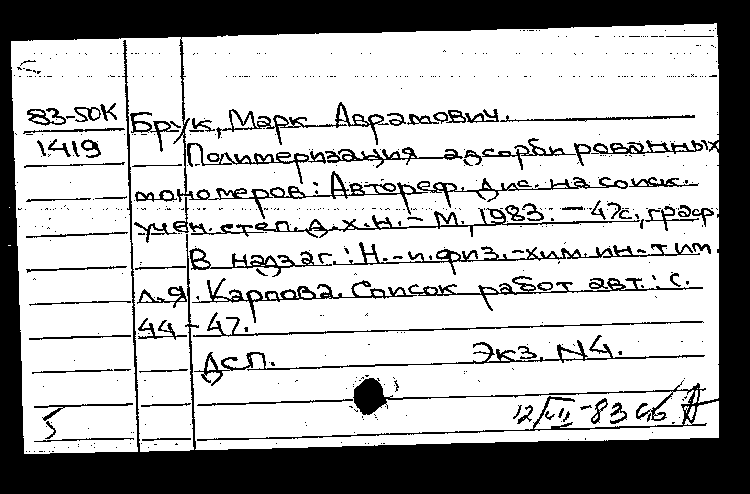 83-50К
1419
Брук, Марк Аврамович.
Полимеризация адсорбированных
мономеров: Автореф. дис. на соиск.
учен. степ. д.х.н. - М., 1983. - 47с., граф.
В надзаг.: Н.-и. физ.-хим. ин-т им.
Л.Я. Карпова. Список работ авт.: с.
44-47.
ДСП. Экз. N4.
5 12/VII-83